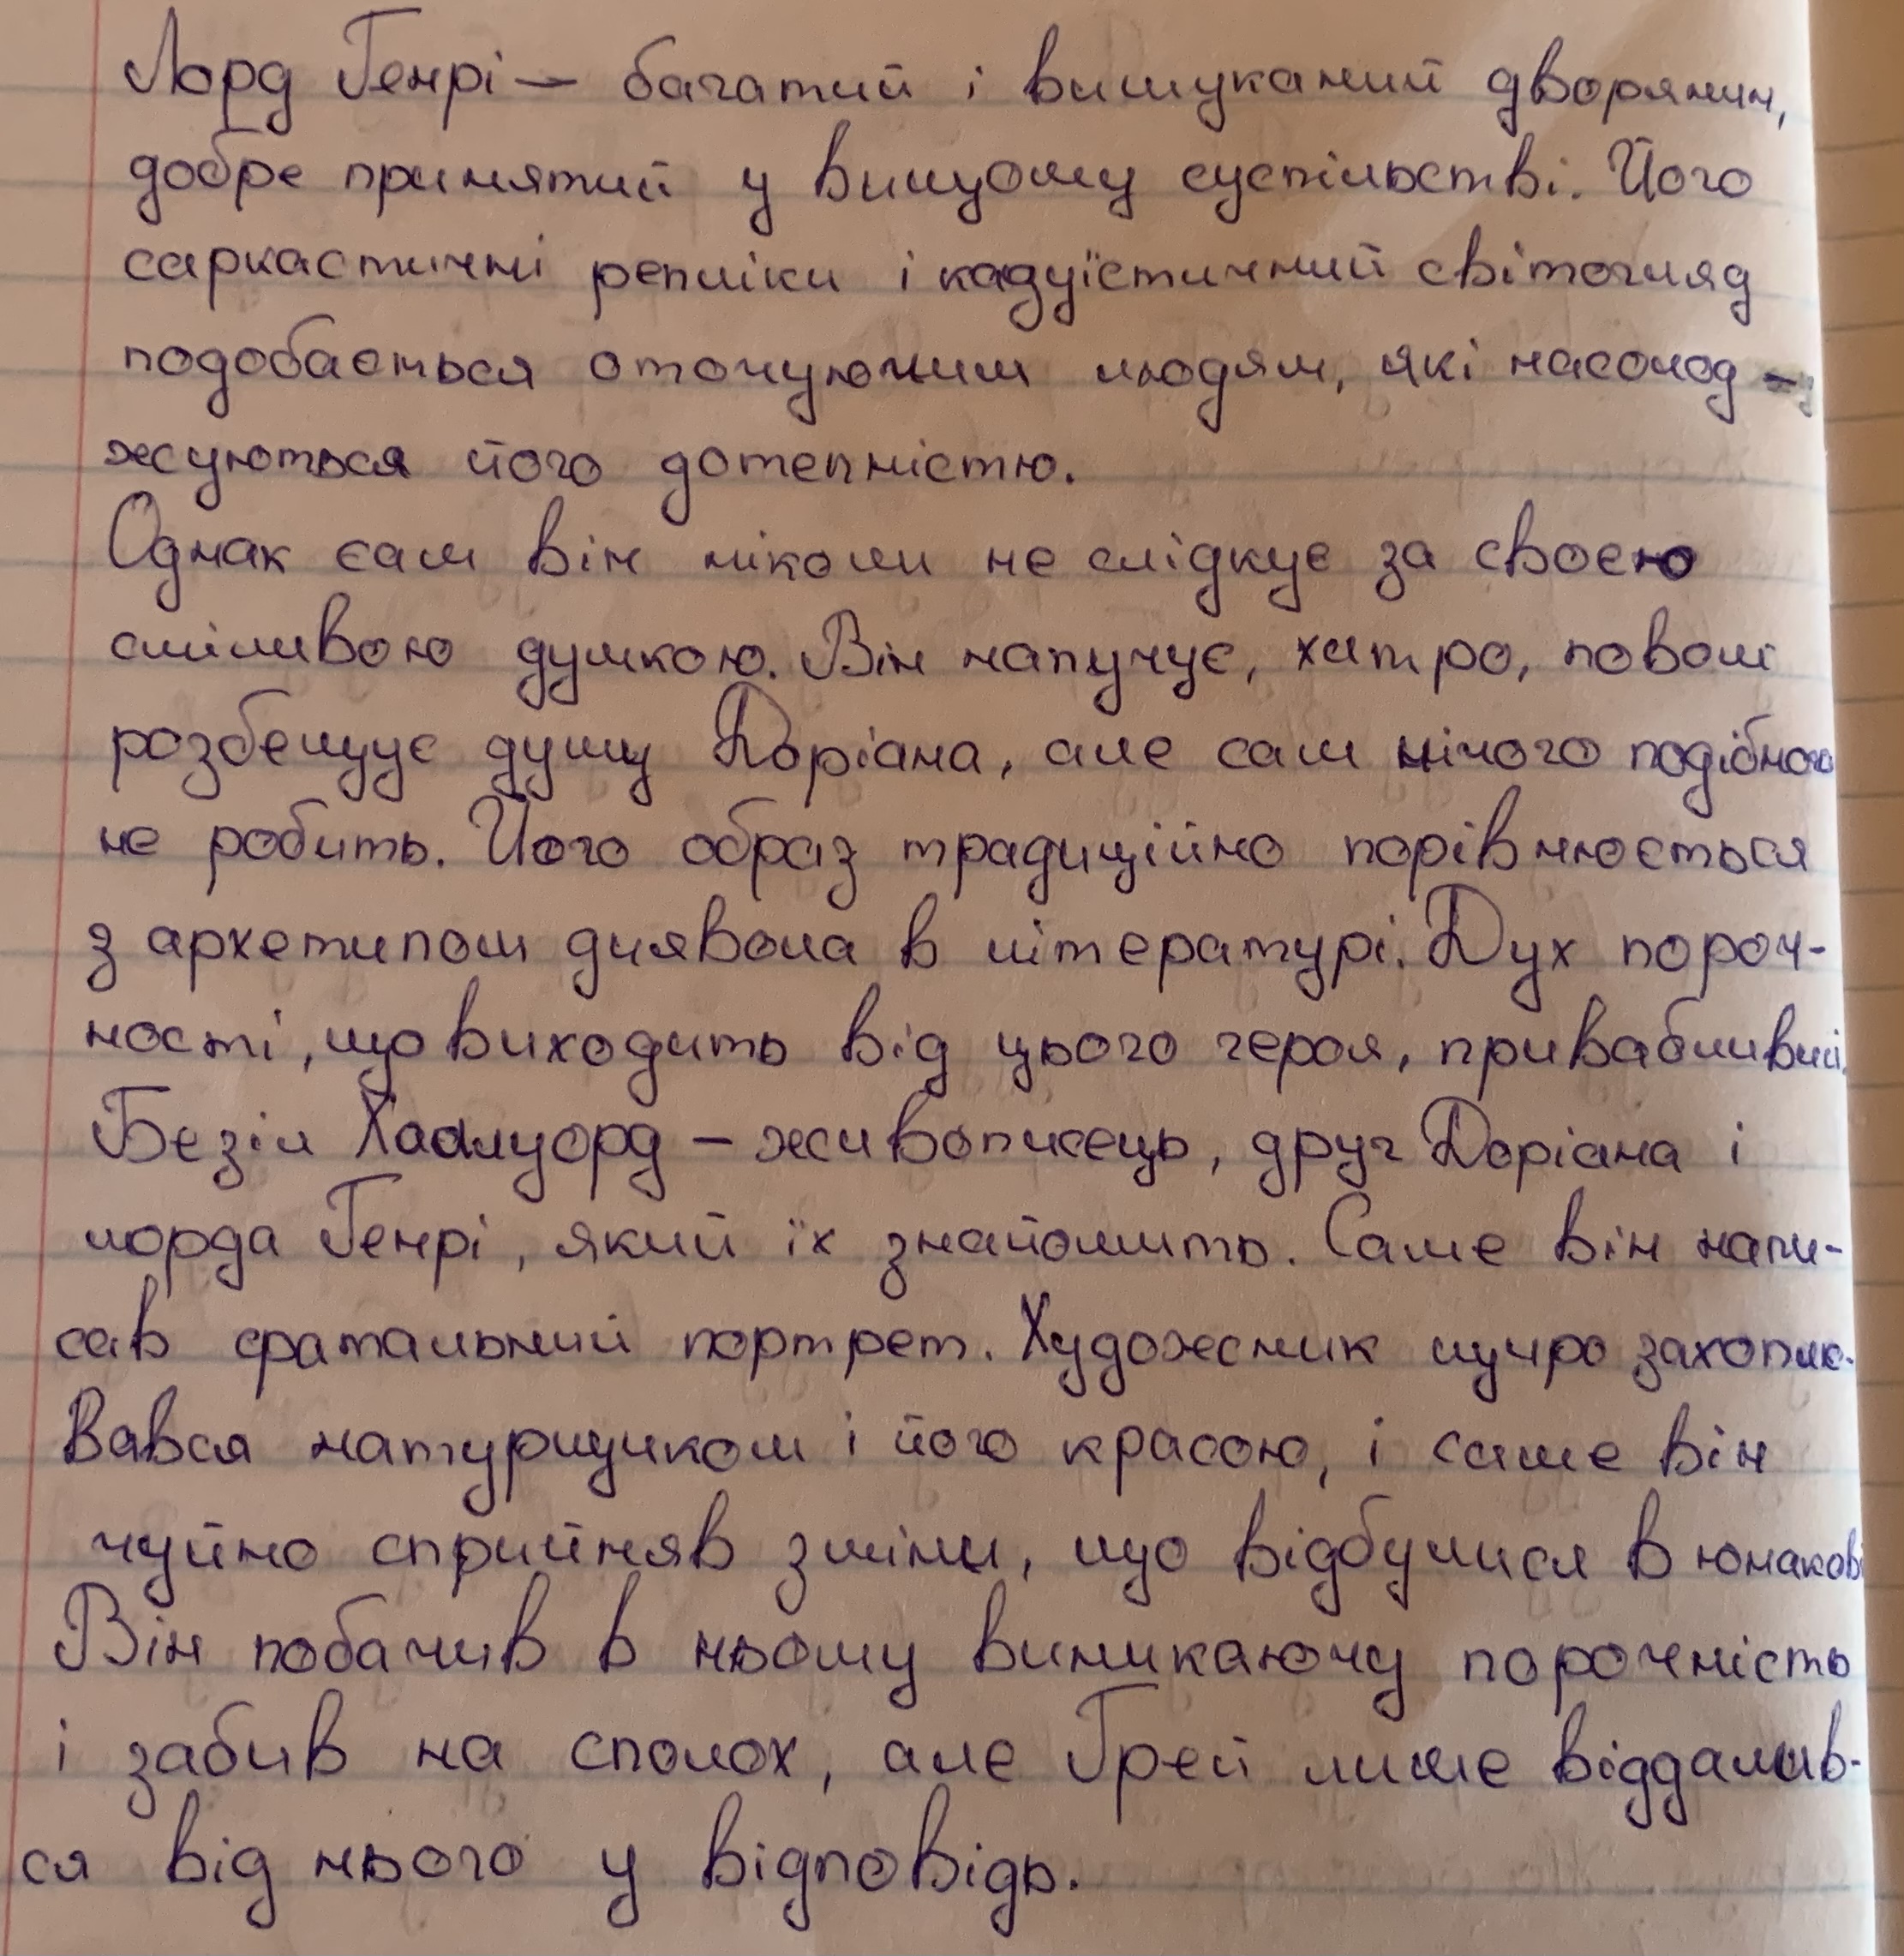 Лорд Генрі — багатий і вишуканий дворянин,
добре принятий у вищому суспільстві. Його
саркастичні репліки і кадуїстичний світогляд
подобається оточуючим людям, які насолод-
жуються його дотепністю.
Однак сам він ніколи не слідкує за своєю
сміливою думкою. Він напучує, хитро, поволі
розбещує душу Доріана, але сам нічого подібного
не робить. Його образ традиційно порівнюється
з архетипом диявола в літературі. Дух пороч-
ності, що виходить від цього героя, привабливий.
Безіл Хаалуорд – живописець, друг Доріана і
лорда Генрі, який їх знайомить. Саме він напи-
сав фатальний портрет. Художник щиро захоплю-
вався натурщиком і його красою, і саме він
чуйно сприйняв зміни, що відбулися в юнакові
Він побачив в ньому виникаючу порочність
і забив на сполох, але Грей лише віддалив-
ся від нього у відповідь.